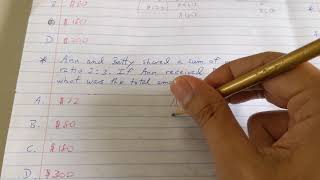 B. $80
C. $180
D. $300
* Ann and Betty shared a sum of
ratio 2:3. If Ann received
what was the total
A. $72
B. $80
C. $180
D. $300